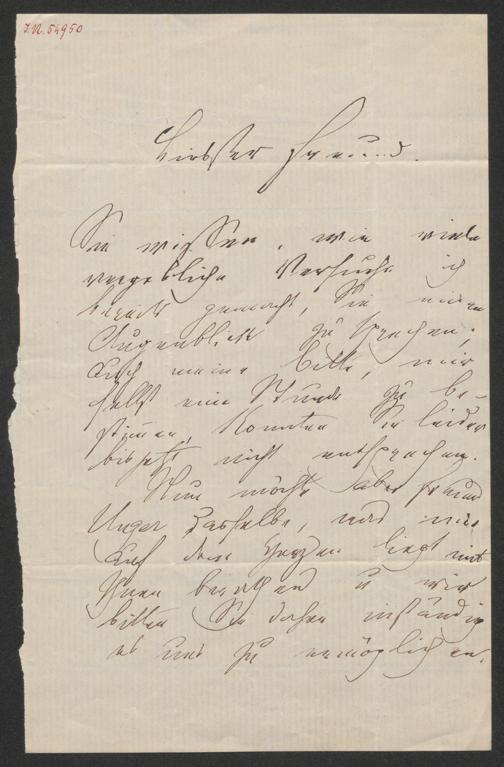 I.N. 54950
Liebster Freund.
Sie wissen, wie viele
vergebliche Versuche ich
bereits gemacht, Sie einen
Augenblick zu sprechen;
auch meine Bitte, mir
selbst eine Stunde zu be-
stimmen, konnten Sie leider
bis jetzt nicht entsprechen.
Nun möchte aber Freund
Unger dasselbe, was mir
auf dem Herzen liegt mit
Ihnen berathen u wir
bitten Sie daher inständig
es uns zu ermöglichen.